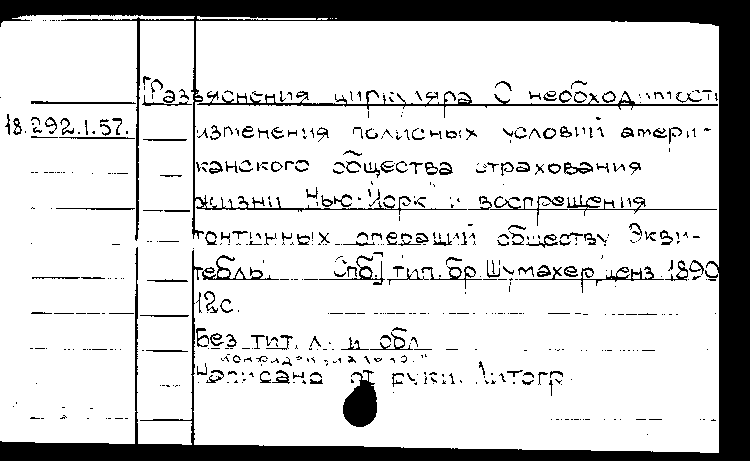 [Разъяснения циркуляра О необходимости
18.292.1.57.
изменения полисных условий амери-
канского общества страхования
жизни "Нью-Йорк" и воспрещения
тонтинных операций обществу Экви-
тебль. Спб.], тип. бр. Шумахер, ценз. 1890
12с.
Без тит. л. и обл
"Конфиденциально."
Написано от руки. Литогр.